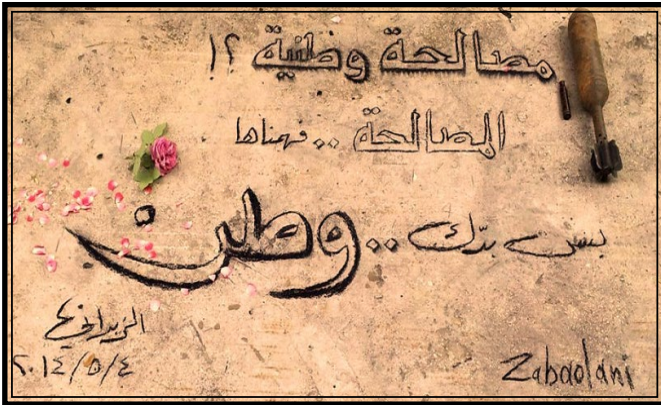 مصالحة وطنية ؟!
المصالحة .. فهمناها
بس بدّك .. وطن
الزبداني
٢٠١٤/٥/٤
Zabadani